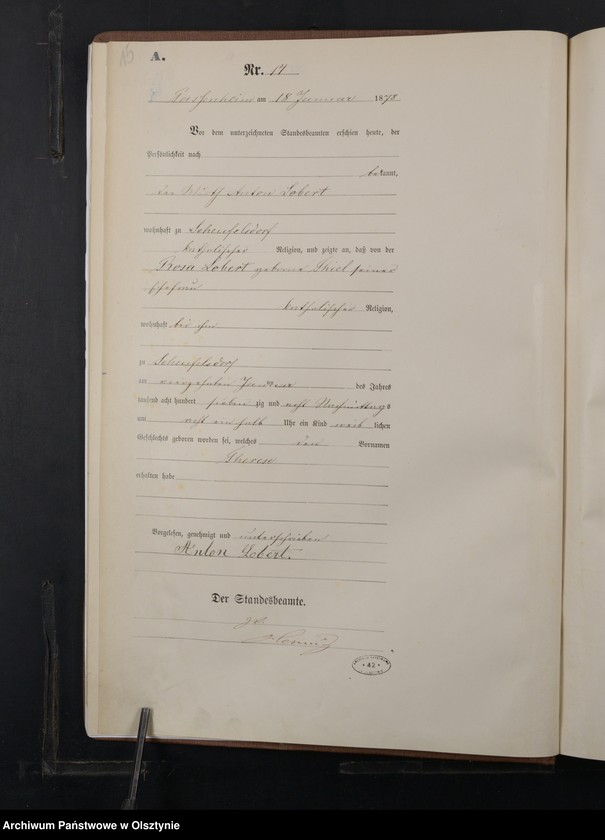 A.
Nr. 14
am 18 Januar 1878
Vor dem unterzeichneten Standesbeamten erschien heute, der
Persönlichkeit nach
bekannt,
der Wirth Anton Lobert
wohnhaft zu
katholischer Religion, und zeigte an, daß von der
Rosa Lobert geborene Thiel seiner
Ehefrau
katholischer Religion,
wohnhaft bei ihm
zu
am vierzehnten Januar des Jahres
tausend acht hundert sieben zig und acht Nachmittags
um acht ein halb Uhr ein Kind weib lichen
Geschlechts geboren worden sei, welches den Vornamen
Theresa
erhalten habe
Vorgelesen, genehmigt und unterschrieben
Anton Lobert.
Der Standesbeamte.
42
Archiwum Państwowe w Olsztynie